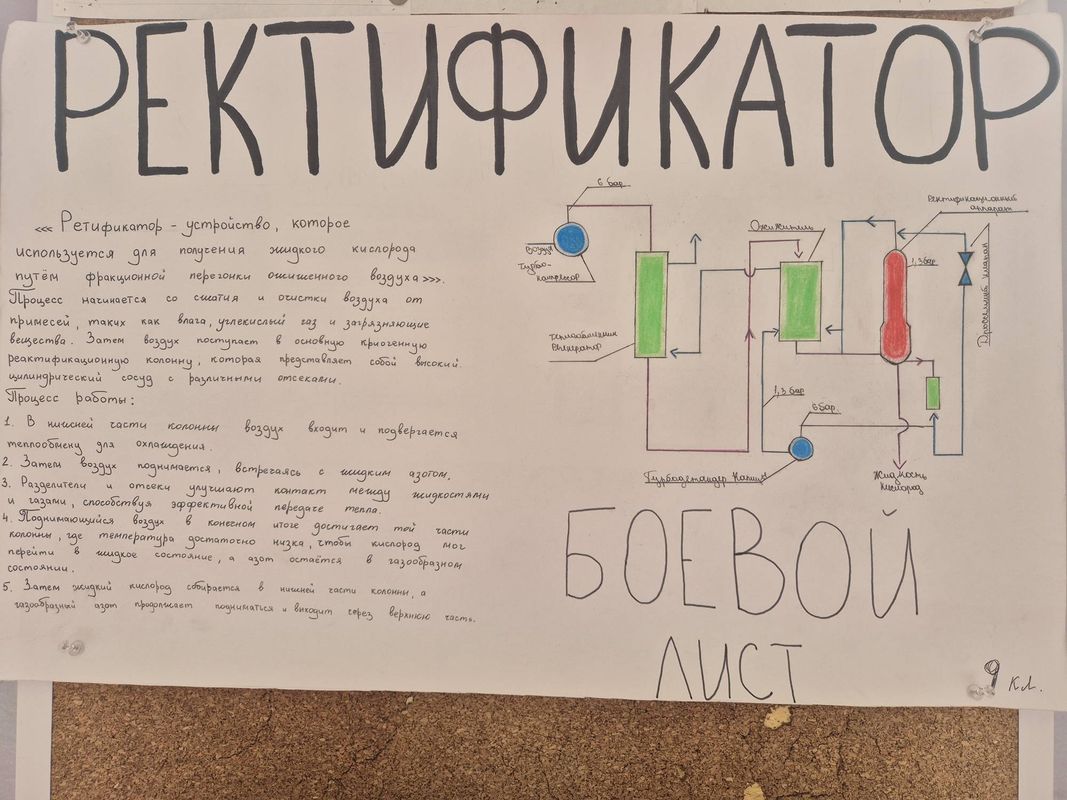 РЕКТИФИКАТОР
<<< Ретификатор - устройство, которое
используется для получения жидкого кислорода
путём фракционной перегонки сжиженного воздуха >>>.
Процесс начинается со сжатия и очистки воздуха от
примесей, таких как влага, углекислый газ и загрязняющие
вещества. Затем воздух поступает в основную криогенную
реактификационную колонну, которая представляет собой высокий
цилиндрический сосуд с различными отсеками.
Процесс работы:
1. В нижней части колонны воздух входит и подвергается
теплообмену для охлаждения.
2. Затем воздух поднимается, встречаясь с жидким азотом.
3. Разделители и отсеки улучшают контакт между жидкостями
и газами, способствуя эффективной передаче тепла.
4. Поднимающийся воздух в конечном итоге достигает той части
колонны, где температура достаточно низка, чтобы кислород мог
перейти в жидкое состояние, а азот остаётся в газообразном
состоянии.
5. Затем жидкий кислород собирается в нижней части колонны, а
газообразный азот продолжает подниматься и выходит через верхнюю часть.
6 бар
Воздух
Турбо-
компрессор
Теплообменник
Ожижитель
Ректификационный
аппарат
1,3бар
Дроссельный клапан
1,3 бар
6бар
Турбодетандер Капицы
Жидкость
кислород
БОЕВОЙ
ЛИСТ
9 кл.